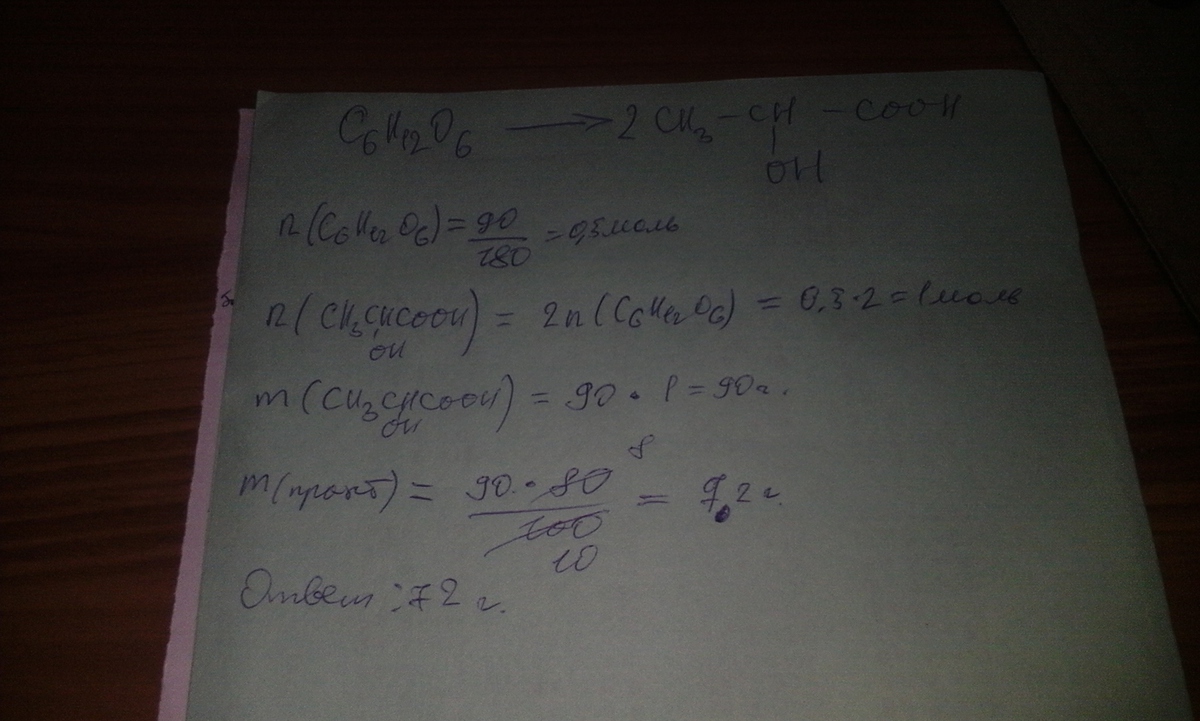 C₆H₁₂O₆ → 2 CH₃ – CH – COOH
OH
n(C₆H₁₂O₆) = 90/180 = 0,5 моль
n(CH₃CHCOOH) = 2n(C₆H₁₂O₆) = 0,5·2 = 1 моль
OH
m(CH₃CHCOOH) = 90 · 1 = 90 г.
OH
8
m(практ) = 90 · 80/100 = 7.2 г.
10
Ответ: 72 г.